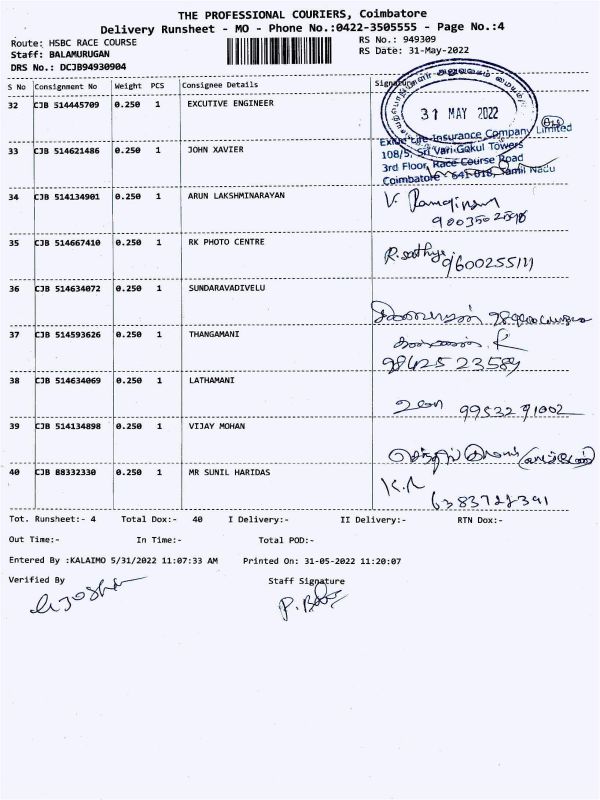 THE PROFESSIONAL COURIERS, Coimbatore
Delivery Runsheet - MO - Phone No.:0422-3505555 - Page No.:4
Route: HSBC RACE COURSE
RS No.: 949309
Staff: BALAMURUGAN
RS Date: 31-May-2022
DRS No.: DCJB94930904
S No Consignment No Weight PCS Consignee Details Signature
32 CJB 514445709 0.250 1 EXCUTIVE ENGINEER
31 MAY 2022
Exide Life Insurance Company Limited
108/5, Sri Vari Gokul Towers
3rd Floor, Race Course Road
Coimbatore - 641 018, Tamil Nadu
33 CJB 514621486 0.250 1 JOHN XAVIER
34 CJB 514134901 0.250 1 ARUN LAKSHMINARAYAN
35 CJB 514667410 0.250 1 RK PHOTO CENTRE
R. sathya 9600255111
36 CJB 514634072 0.250 1 SUNDARAVADIVELU
37 CJB 514593626 0.250 1 THANGAMANI
38 CJB 514634069 0.250 1 LATHAMANI
உமா 99532 91002
39 CJB 514134898 0.250 1 VIJAY MOHAN
40 CJB 88332330 0.250 1 MR SUNIL HARIDAS
K.R
Tot. Runsheet:- 4 Total Dox:- 40 I Delivery:- II Delivery:- RTN Dox:-
Out Time:- In Time:- Total POD:-
Entered By :KALAIMO 5/31/2022 11:07:33 AM Printed On: 31-05-2022 11:20:07
Verified By Staff Signature